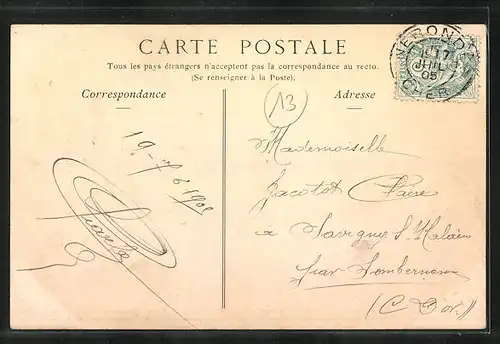 CARTE POSTALE
Tous les pays étrangers n'acceptent pas la correspondance au recto.
(Se renseigner à la Poste).
Correspondance
Adresse
13
NERONDE
17
JUIL
05
CHER
Mademoiselle
Jacotot Claire
à Savigny S. Malain
par Sombernon
(C. d'or)